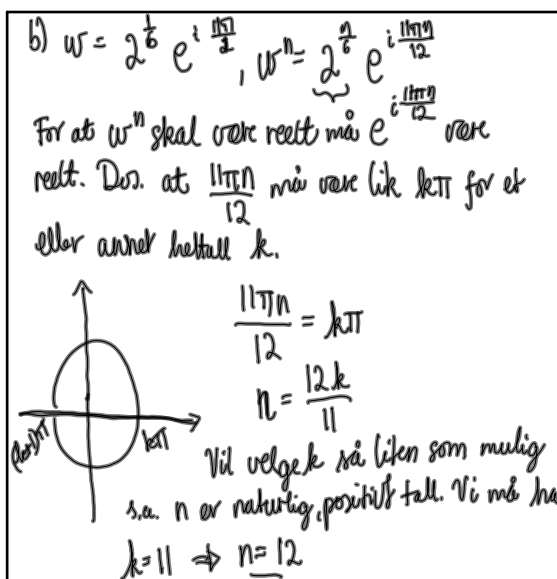 b) w = 2^{1/6} e^{i 11π/12}, w^n = 2^{n/6} e^{i 11πn/12}
For at w^n skal være reelt må e^{i 11πn/12} være
reelt. Dvs. at 11πn/12 må være lik kπ for et
eller annet heltall k.
11πn/12 = kπ
n = 12k/11
kπ
Vil velge k så liten som mulig
s.a. n er naturlig, positivt tall. Vi må ha
k = 11 ⇒ n = 12